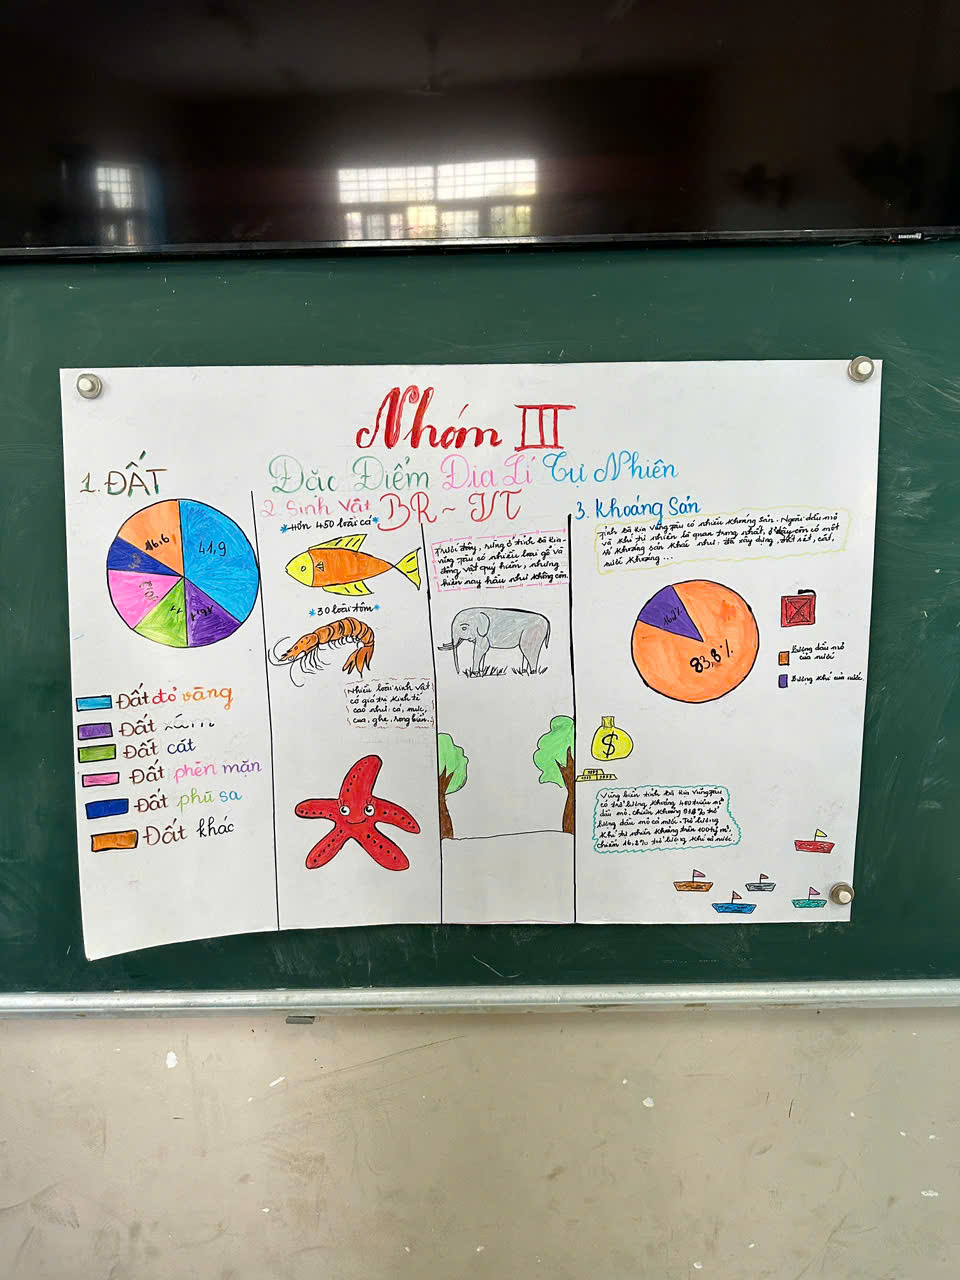 Nhóm III
Đặc Điểm Địa Lí Tự Nhiên
BR ~ VT
1. ĐẤT
41,9
16.6
Đất đỏ vàng
Đất xám
Đất cát
Đất phèn mặn
Đất phù sa
Đất khác
2. Sinh Vật
*Hơn 450 loài cá*
*30 loài tôm*
Nhiều loài sinh vật
có giá trị kinh tế
cao như: cá, mực,
cua, ghẹ, rong biển...
Trước đây, rừng ở tỉnh Bà Rịa-
Vũng Tàu có nhiều loại gỗ và
động vật quý hiếm, nhưng
hiện nay hầu như không còn.
3. Khoáng Sản
Tỉnh Bà Rịa Vũng Tàu có nhiều khoáng sản. Ngoài dầu mỏ
và khí tự nhiên là quan trọng nhất, ở đây còn có một
số khoáng sản khác như: đá xây dựng, đất sét, cát,
nước khoáng...
83.8%
Lượng dầu mỏ
của nước
Lượng khí của nước
$
Vùng biển tỉnh Bà Rịa Vũng Tàu
có trữ lượng khoảng 400 triệu m³
dầu mỏ, chiếm khoảng
lượng dầu mỏ cả nước. Trữ lượng
khí tự nhiên khoảng trên 100 tỷ m³,
chiếm 16,2% trữ lượng khí cả nước.